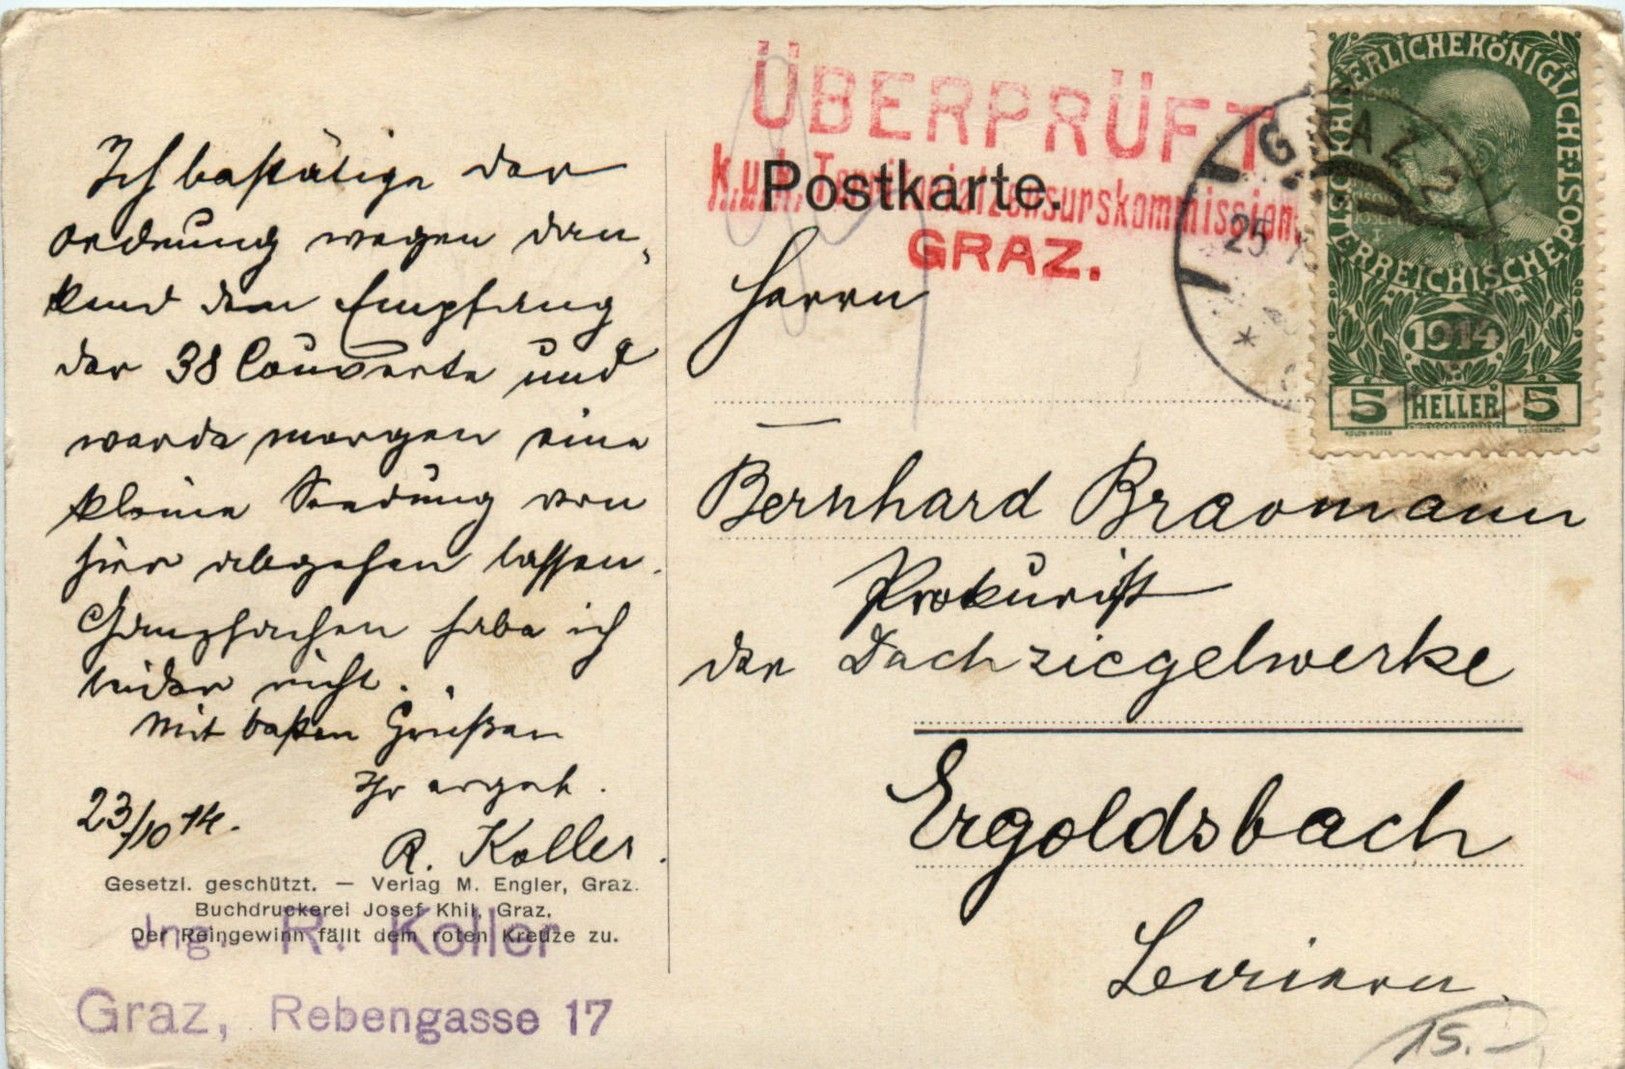 Ich bestätige der
Ordnung wegen dan-
kend den Empfang
der 38 Couverte und
werde morgen eine
kleine Sendung von
hier abgehen lassen.
Ganzsachen habe ich
leider nicht.
Mit besten Grüßen
Ihr ergeb.
23/10 14.
R. Koller.
Gesetzl. geschützt. — Verlag M. Engler, Graz.
Buchdruckerei Josef Khil, Graz.
Der Reingewinn fällt dem roten Kreuze zu.
Jng. R. Koller
Graz, Rebengasse 17
ÜBERPRÜFT
K.u.k. Territorialzensurskommission
GRAZ.
Postkarte.
GRAZ 2
25
KAISERLICHEKÖNIGLICHE
ÖSTERREICHISCHEPOST
1908
1914
5 HELLER 5
Herrn
Bernhard Braomann
Prokurist
der Dachziegelwerke
Ergoldsbach
Baiern.
15.